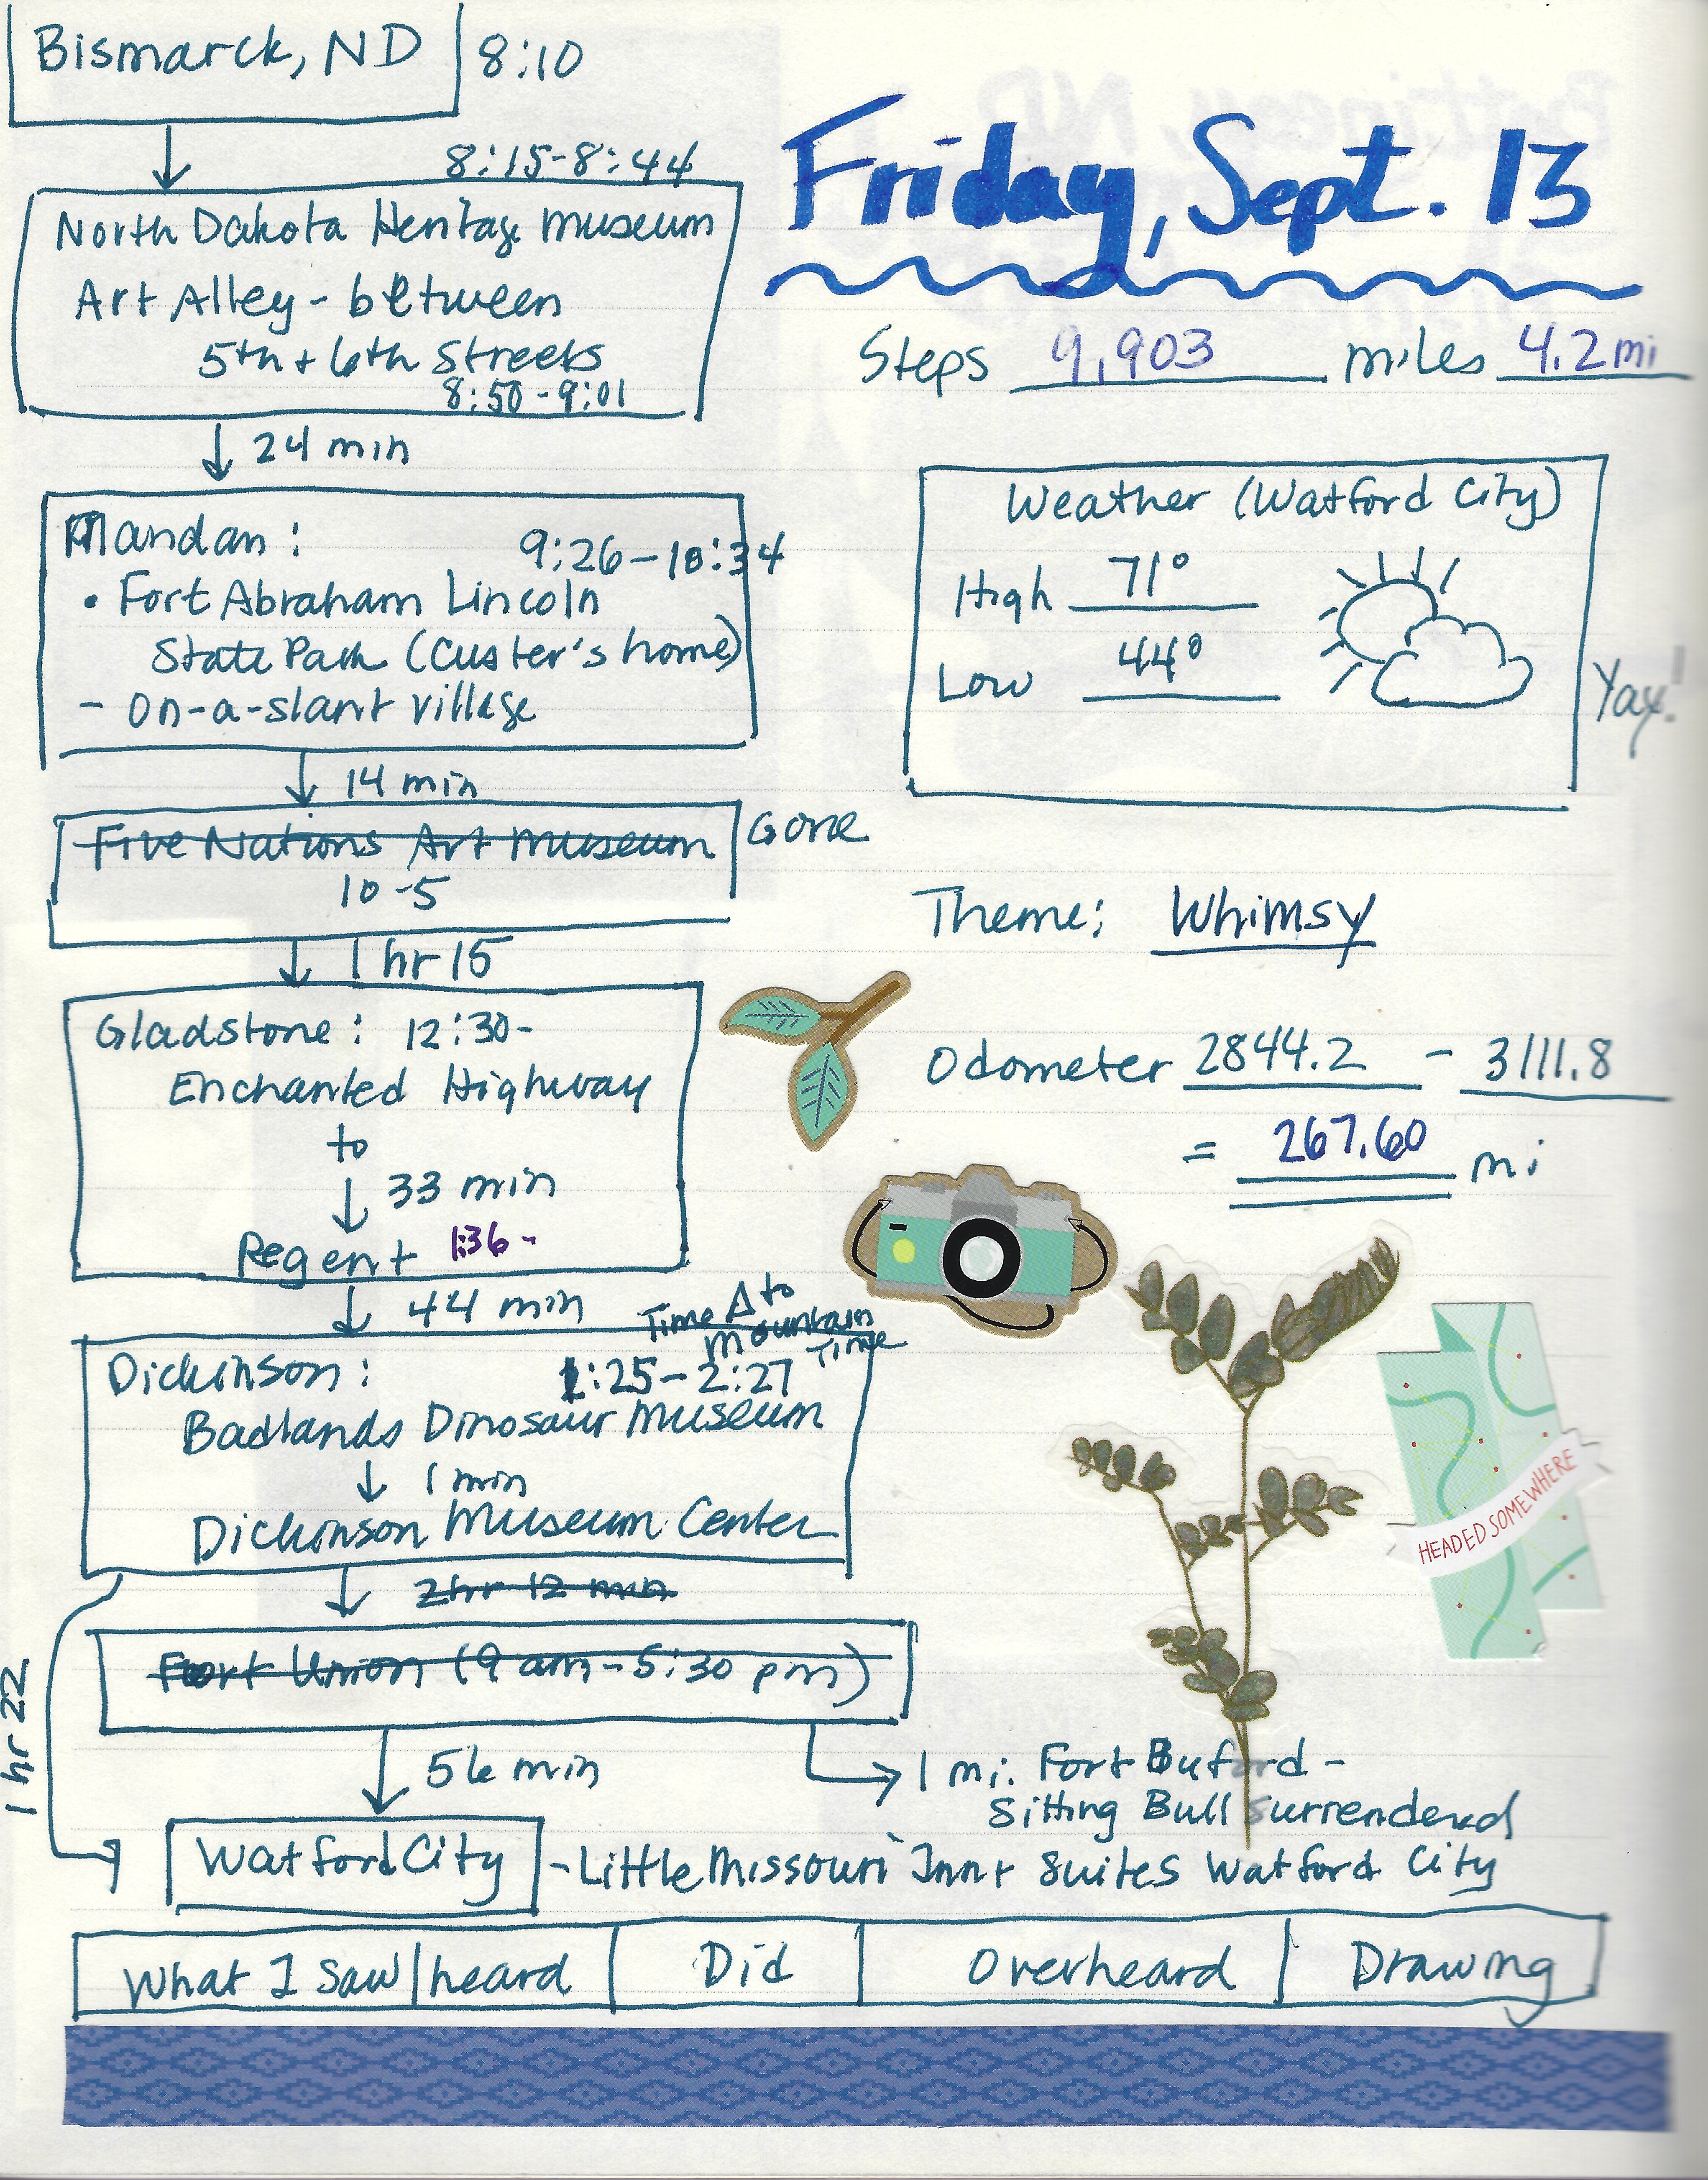 Bismarck, ND 8:10
8:15-8:44
North Dakota Heritage Museum
Art Alley - between
5th + 6th Streets
8:50-9:01
24 min
Mandan:
9:26-10:34
• Fort Abraham Lincoln
State Park (Custer's home)
- On-a-slant village
14 min
Five Nations Art Museum Gone
10-5
1 hr 15
Gladstone: 12:30-
Enchanted Highway
to
33 min
Regent 1:36-
44 min
Time Δ to
Mountain
Time
Dickinson: 1:25-2:27
Badlands Dinosaur Museum
1 min
Dickinson Museum Center
2hr 12 min
Fort Union (9 am-5:30 pm)
1 hr 22
56 min
1 mi. Fort Buford -
Sitting Bull surrendered
Watford City - Little Missouri Inn + Suites Watford City
What I saw|heard Did Overheard Drawing
Friday, Sept. 13
Steps 9,903 miles 4.2 mi
Weather (Watford City)
High 71°
Low 44°
Yay!
Theme: Whimsy
Odometer 2844.2 - 3111.8
= 267.60 mi
HEADED SOMEWHERE